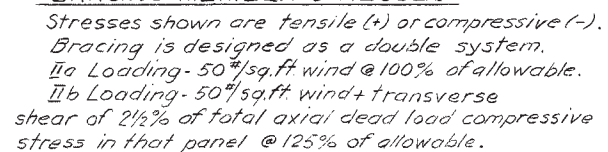 Stresses shown are tensile (+) or compressive (-).
Bracing is designed as a double system.
IIa Loading - 50#/sq.ft. wind @ 100% of allowable.
IIb Loading - 50#/sq.ft. wind + transverse
shear of 2½% of total axial dead load compressive
stress in that panel @ 125% of allowable.